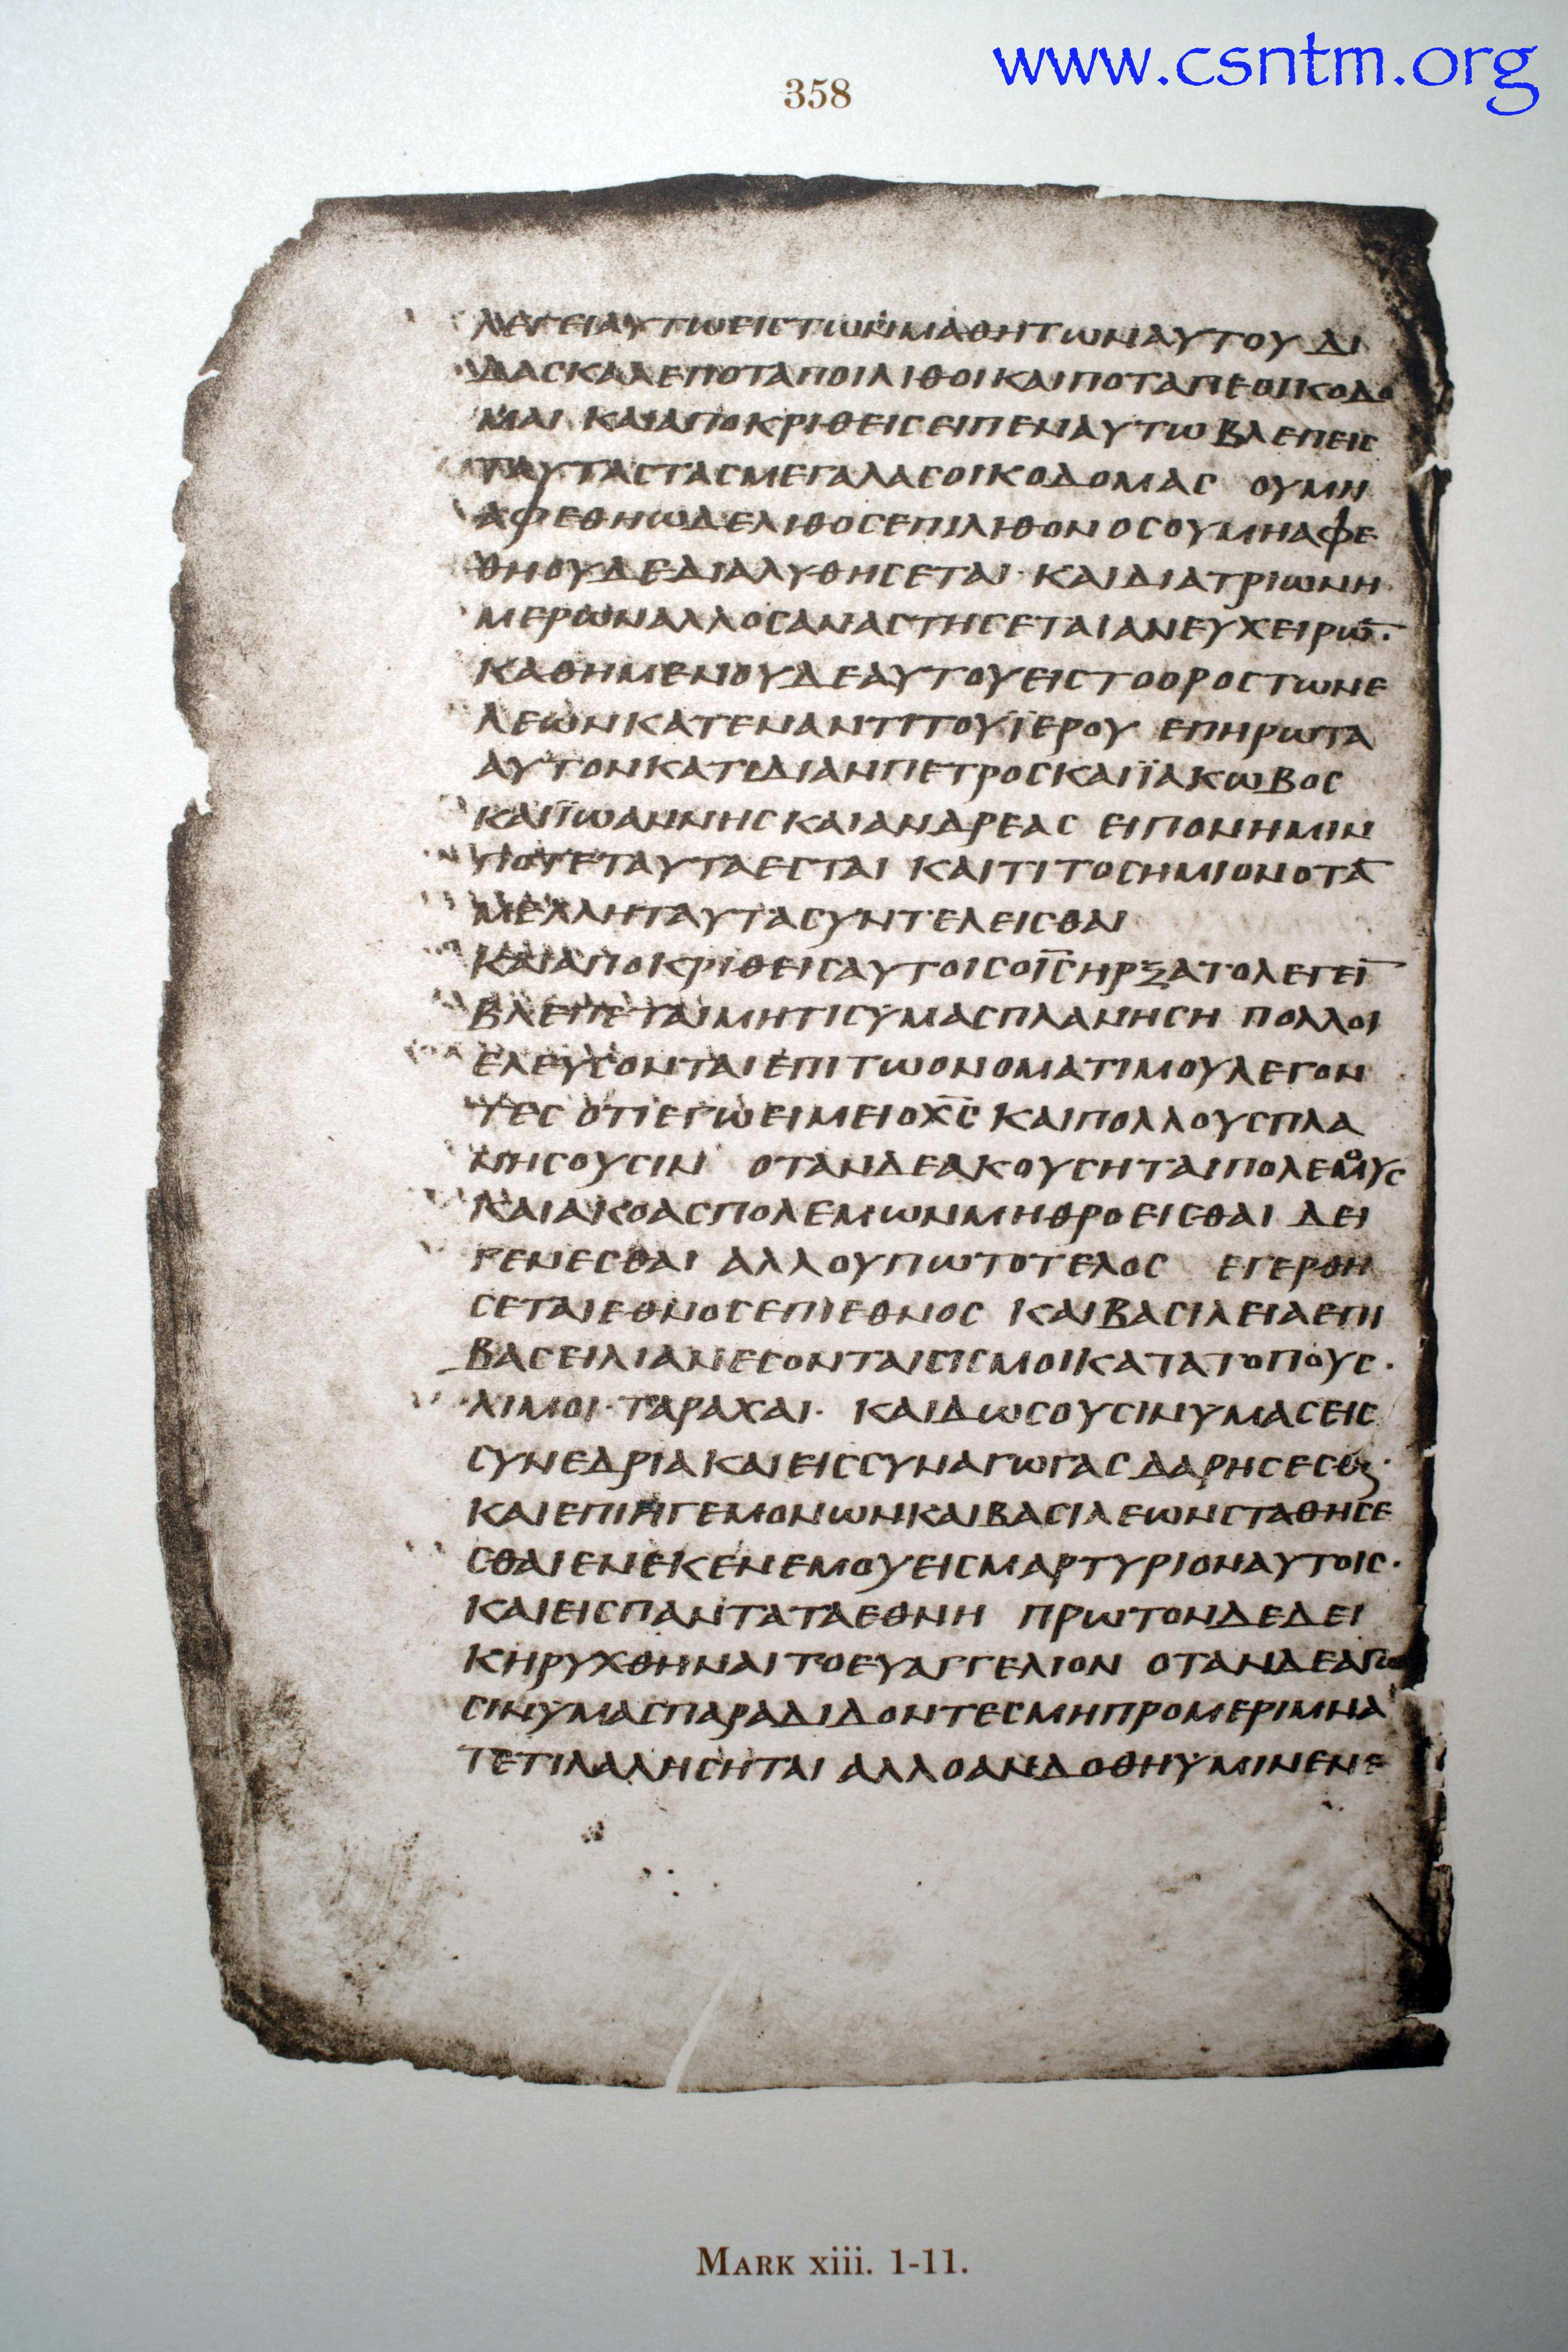 www.csntm.org
358
ΛΕΓΕΙΑΥΤΩΕΙCΤΩΝΜΑΘΗΤΩΝΑΥΤΟΥ ΔΙ
ΔΑCΚΑΛΕΠΟΤΑΠΟΙΛΙΘΟΙΚΑΙΠΟΤΑΠΕΟΙΚΟΔΟ
ΜΑΙ ΚΑΙΑΠΟΚΡΙΘΕΙCΕΙΠΕΝΑΥΤΩ ΒΛΕΠΕΙC
ΤΑΥΤΑCΤΑCΜΕΓΑΛΑCΟΙΚΟΔΟΜΑC ΟΥΜΗ
ΑΦΕΘΗΩΔΕΛΙΘΟCΕΠΙΛΙΘΟΝΟCΟΥΜΗΑΦΕ
ΘΗΟΥΔΕΔΙΑΛΥΘΗCΕΤΑΙ· ΚΑΙΔΙΑΤΡΙΩΝΗ
ΜΕΡΩΝΑΛΛΟCΑΝΑCΤΗCΕΤΑΙΑΝΕΥΧΕΙΡΩ̅·
ΚΑΘΗΜΕΝΟΥΔΕΑΥΤΟΥΕΙCΤΟΟΡΟCΤΩΝΕ
ΛΕΩΝΚΑΤΕΝΑΝΤΙΤΟΥΪΕΡΟΥ ΕΠΗΡΩΤΑ
ΑΥΤΟΝΚΑΤΙΔΙΑΝΠΕΤΡΟCΚΑΙΪΑΚΩΒΟC
ΚΑΙΪΩΑΝΝΗCΚΑΙΑΝΔΡΕΑC ΕΙΠΟΝΗΜΙΝ
ΠΟΤΕΤΑΥΤΑΕCΤΑΙ ΚΑΙΤΙΤΟCΗΜΙΟΝΟΤΑ̅
ΜΕΛΛΗΤΑΥΤΑCΥΝΤΕΛΕΙCΘΑΙ
ΚΑΙΑΠΟΚΡΙΘΕΙCΑΥΤΟΙCΟΙ̅C̅ΗΡΞΑΤΟΛΕΓΕΙ̅
ΒΛΕΠΕΤΑΙΜΗΤΙCΥΜΑCΠΛΑΝΗCΗ ΠΟΛΛΟΙ
ΕΛΕΥCΟΝΤΑΙΕΠΙΤΩΟΝΟΜΑΤΙΜΟΥΛΕΓΟΝ
ΤΕC ΟΤΙΕΓΩΕΙΜΕΙΟΧ̅C̅ ΚΑΙΠΟΛΛΟΥCΠΛΑ
ΝΗCΟΥCΙΝ ΟΤΑΝΔΕΑΚΟΥCΗΤΑΙΠΟΛΕΜΟΥC
ΚΑΙΑΚΟΑCΠΟΛΕΜΩΝΜΗΘΡΟΕΙCΘΑΙ ΔΕΙ
ΓΕΝΕCΘΑΙ ΑΛΛΟΥΠΩΤΟΤΕΛΟC ΕΓΕΡΘΗ
CΕΤΑΙΕΘΝΟCΕΠΙΕΘΝΟC ΚΑΙΒΑCΙΛΕΙΑΕΠΙ
ΒΑCΕΙΛΙΑΝΕCΟΝΤΑΙCΙCΜΟΙΚΑΤΑΤΟΠΟΥC·
ΛΙΜΟΙ·ΤΑΡΑΧΑΙ· ΚΑΙΔΩCΟΥCΙΝΥΜΑCΕΙC
CΥΝΕΔΡΙΑΚΑΙΕΙCCΥΝΑΓΩΓΑCΔΑΡΗCΕCΘϗ·
ΚΑΙΕΠΙΗΓΕΜΟΝΩΝΚΑΙΒΑCΙΛΕΩΝCΤΑΘΗCΕ
CΘΑΙΕΝΕΚΕΝΕΜΟΥΕΙCΜΑΡΤΥΡΙΟΝΑΥΤΟΙC·
ΚΑΙΕΙCΠΑΝΤΑΤΑΕΘΝΗ ΠΡΩΤΟΝΔΕΔΕΙ
ΚΗΡΥΧΘΗΝΑΙΤΟΕΥΑΓΓΕΛΙΟΝ ΟΤΑΝΔΕΑΓΩ
CΙΝΥΜΑCΠΑΡΑΔΙΔΟΝΤΕCΜΗΠΡΟΜΕΡΙΜΝΑ
ΤΕΤΙΛΑΛΗCΗΤΑΙ ΑΛΛΟΑΝΔΟΘΗΥΜΙΝΕΝΕ
MARK xiii. 1-11.